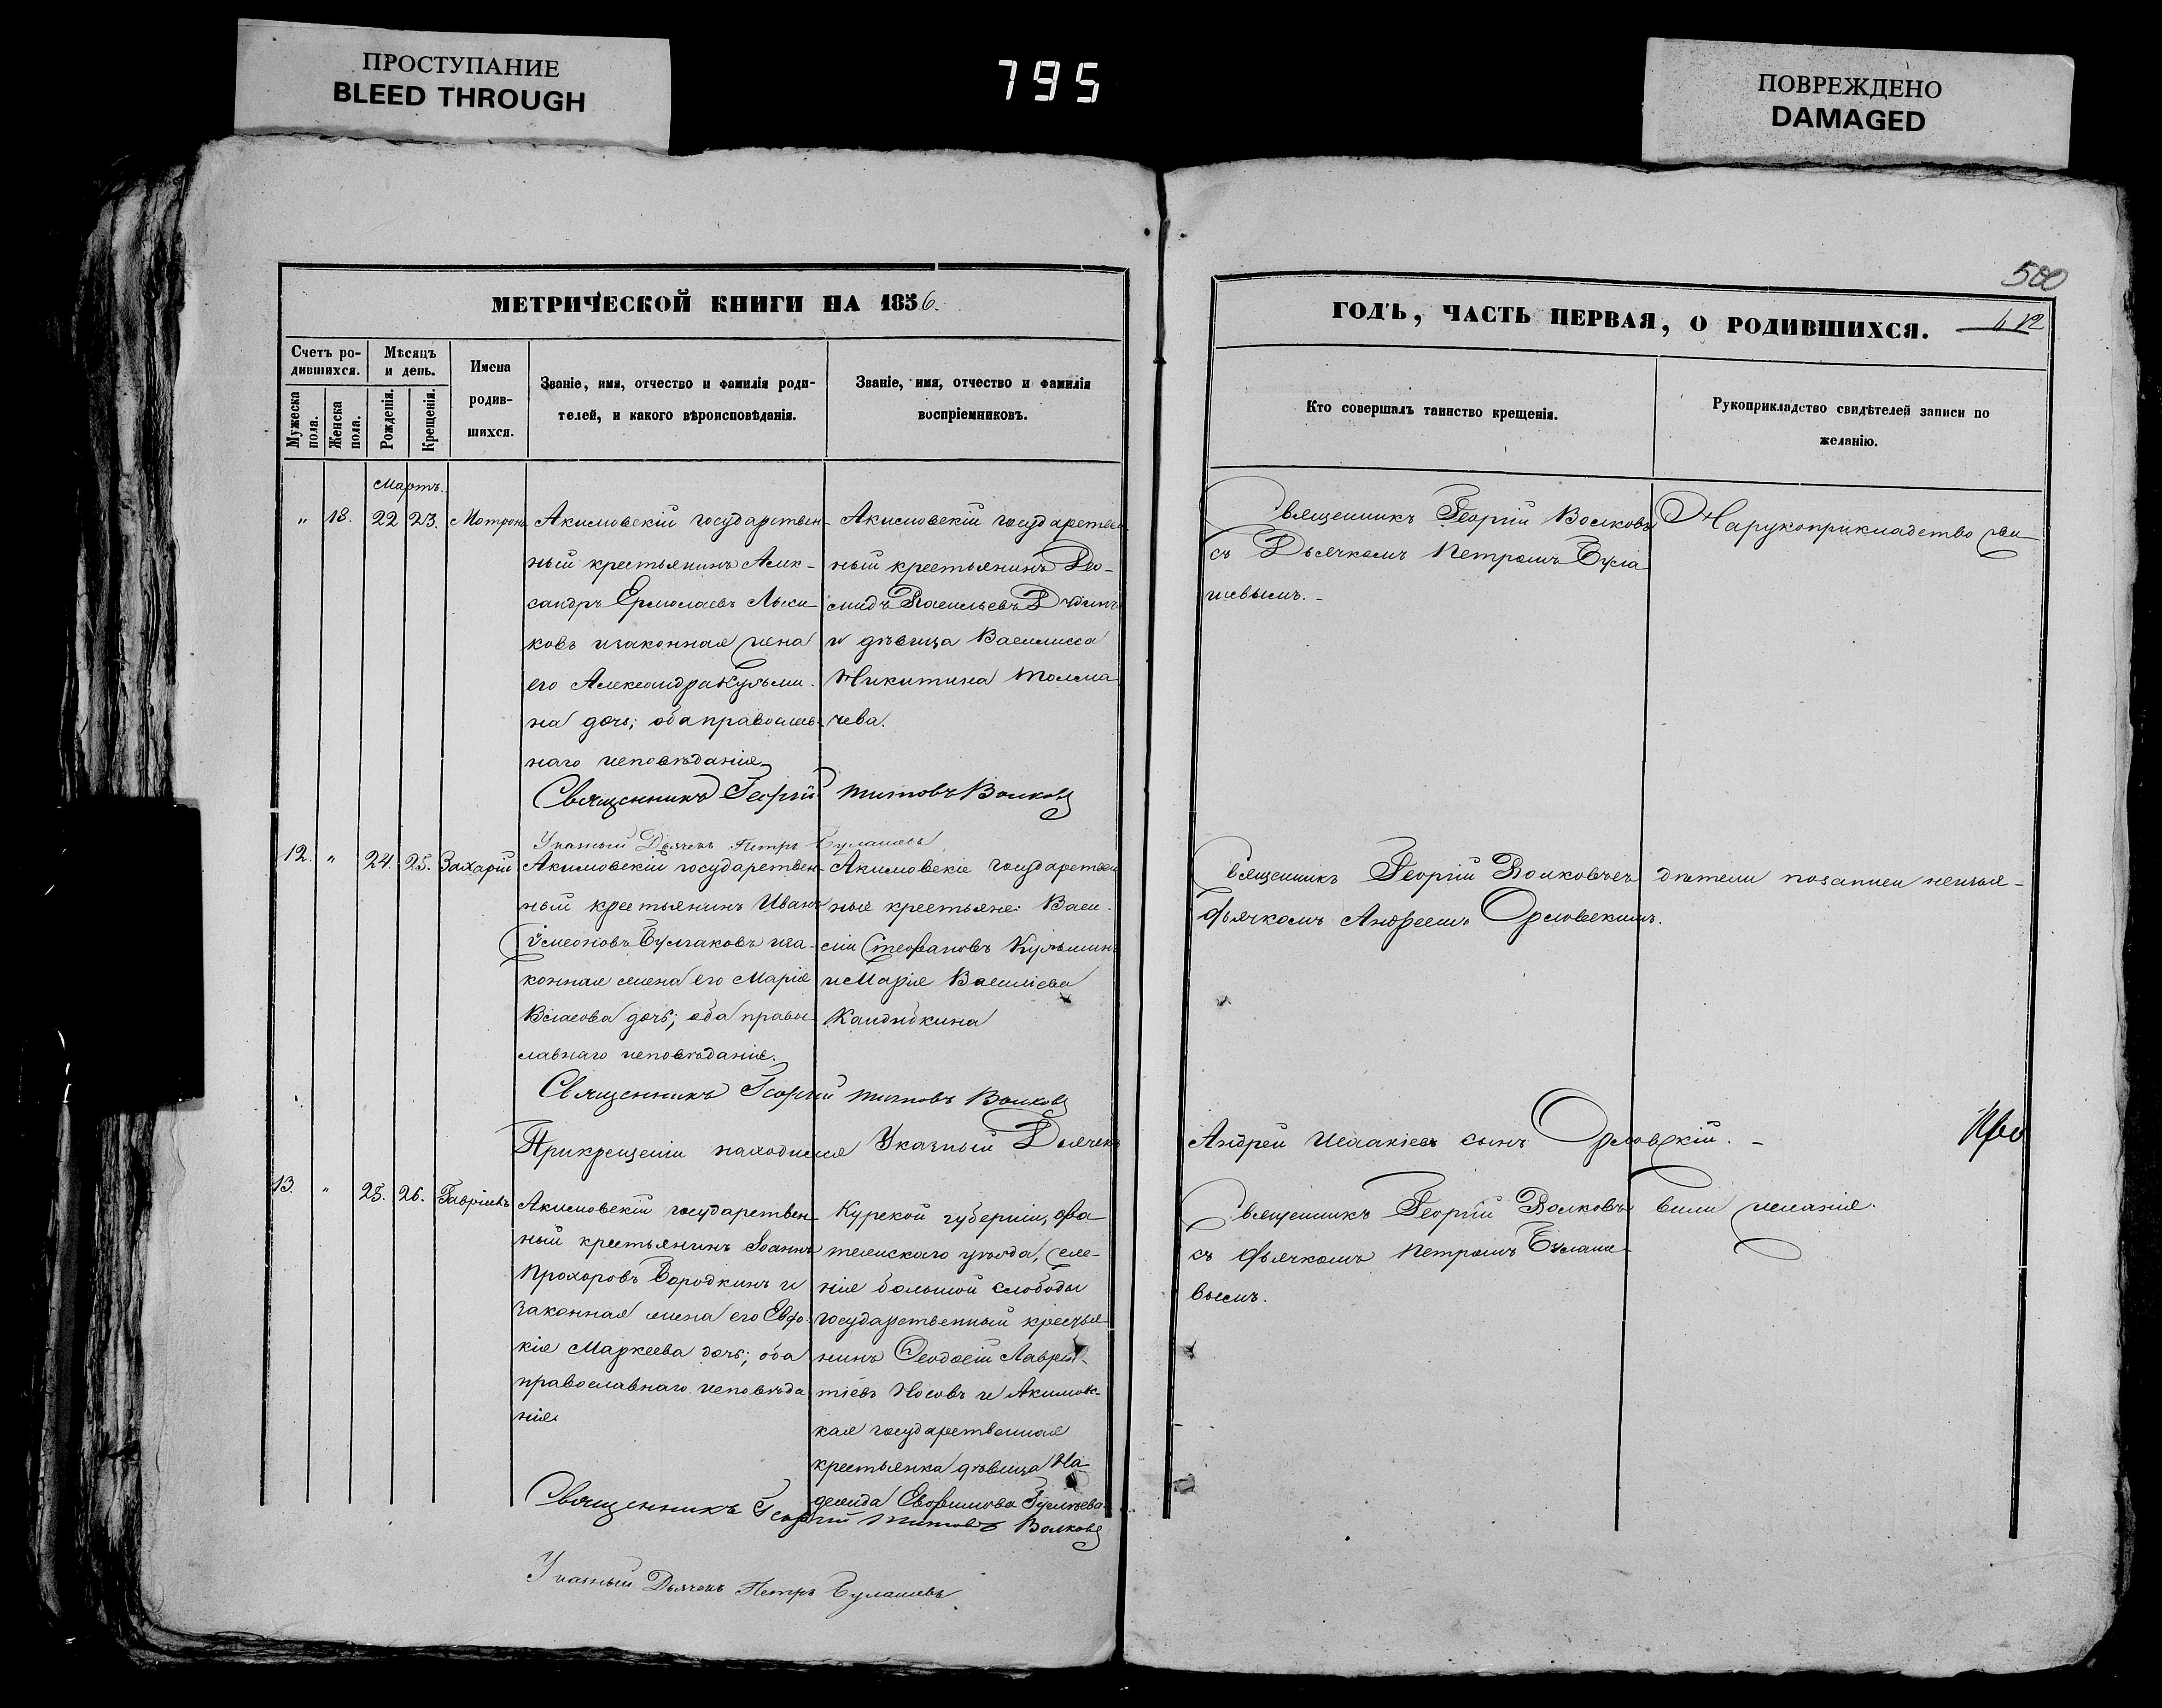 ПРОСТУПАНИЕ
BLEED THROUGH
795
ПОВРЕЖДЕНО
DAMAGED
МЕТРИЧЕСКОЙ КНИГИ НА 1856.
Счетъ ро-
дившихся.
Мужеска
пола.
Женска
пола.
Мѣсяцъ
и день.
Рожденія.
Крещенія.
Имена
родив-
шихся.
Званіе, имя, отчество и фамилія роди-
телей, и какого вѣроисповѣданія.
Званіе, имя, отчество и фамилія
воспріемниковъ.
Мартъ.
„ 18. 22 23. Мотрона
Акимовскій государствен-
ный крестьянинъ Алек-
сандръ Ермолаевъ Лыси-
ковъ изаконная жена
его Александра Кузьми-
на дочь; оба православ-
наго исповѣданія
Акимовскій государствен
ный крестьянинъ Део-
мидъ Васильевъ
и дѣвица Василисса
Никитина Толма
чева.
Священникъ Георгій Титовъ Волковъ
Указный Дьячекъ Петръ Булашевъ
12. „ 24. 25. Захарій
Акимовскій государствен-
ный крестьянинъ Иванъ
Симеоновъ Булгаковъ иза-
конная жена его Марія
Власова дочь; оба право-
славнаго исповѣданія.
Акимовскіе государствен
ные крестьяне: Васи-
лій Стефановъ Кузьминъ
и Марія Василіева
Кандыбкина
Священникъ Георгій Титовъ Волковъ
Прикрещеніи находился Указный Дьячекъ
13. „ 25. 26. Гавріилъ
Акимовскій государствен-
ный крестьянинъ Іоаннъ
Прохоровъ Бородкинъ и
законная жена его Евдо-
кія Маркеева дочь; оба
православнаго исповѣда
нія
Курской губерніи, Фа
тежскаго уѣзда, селе-
нія большой слободы
государственный кресть-
нинъ Ѳеодосій Лаврен-
тіевъ Носовъ и Акимовс-
кая государственная
крестьянка дѣвица На
дежда Евфимова
Священникъ Георгій Титовъ Волковъ
Указный Дьячекъ Петръ Булашевъ
500
ГОДЪ, ЧАСТЬ ПЕРВАЯ, О РОДИВШИХСЯ.
Кто совершалъ таинство крещенія.
Рукоприкладство свидѣтелей записи по
желанію.
Священникъ Георгій Волковъ
съ Дьячкомъ Петромъ Була
шевымъ.
Нарукоприкладство сви
Священникъ Георгій Волковъ съ
дьячкомъ Андреемъ Орловскимъ.
дѣтели позаписи неизъя-
Андрей Исаакіевъ сынъ Орловскій.
Священникъ Георгій Волковъ
съ дьячкомъ Петромъ Булаше-
вымъ.
вили желанія.